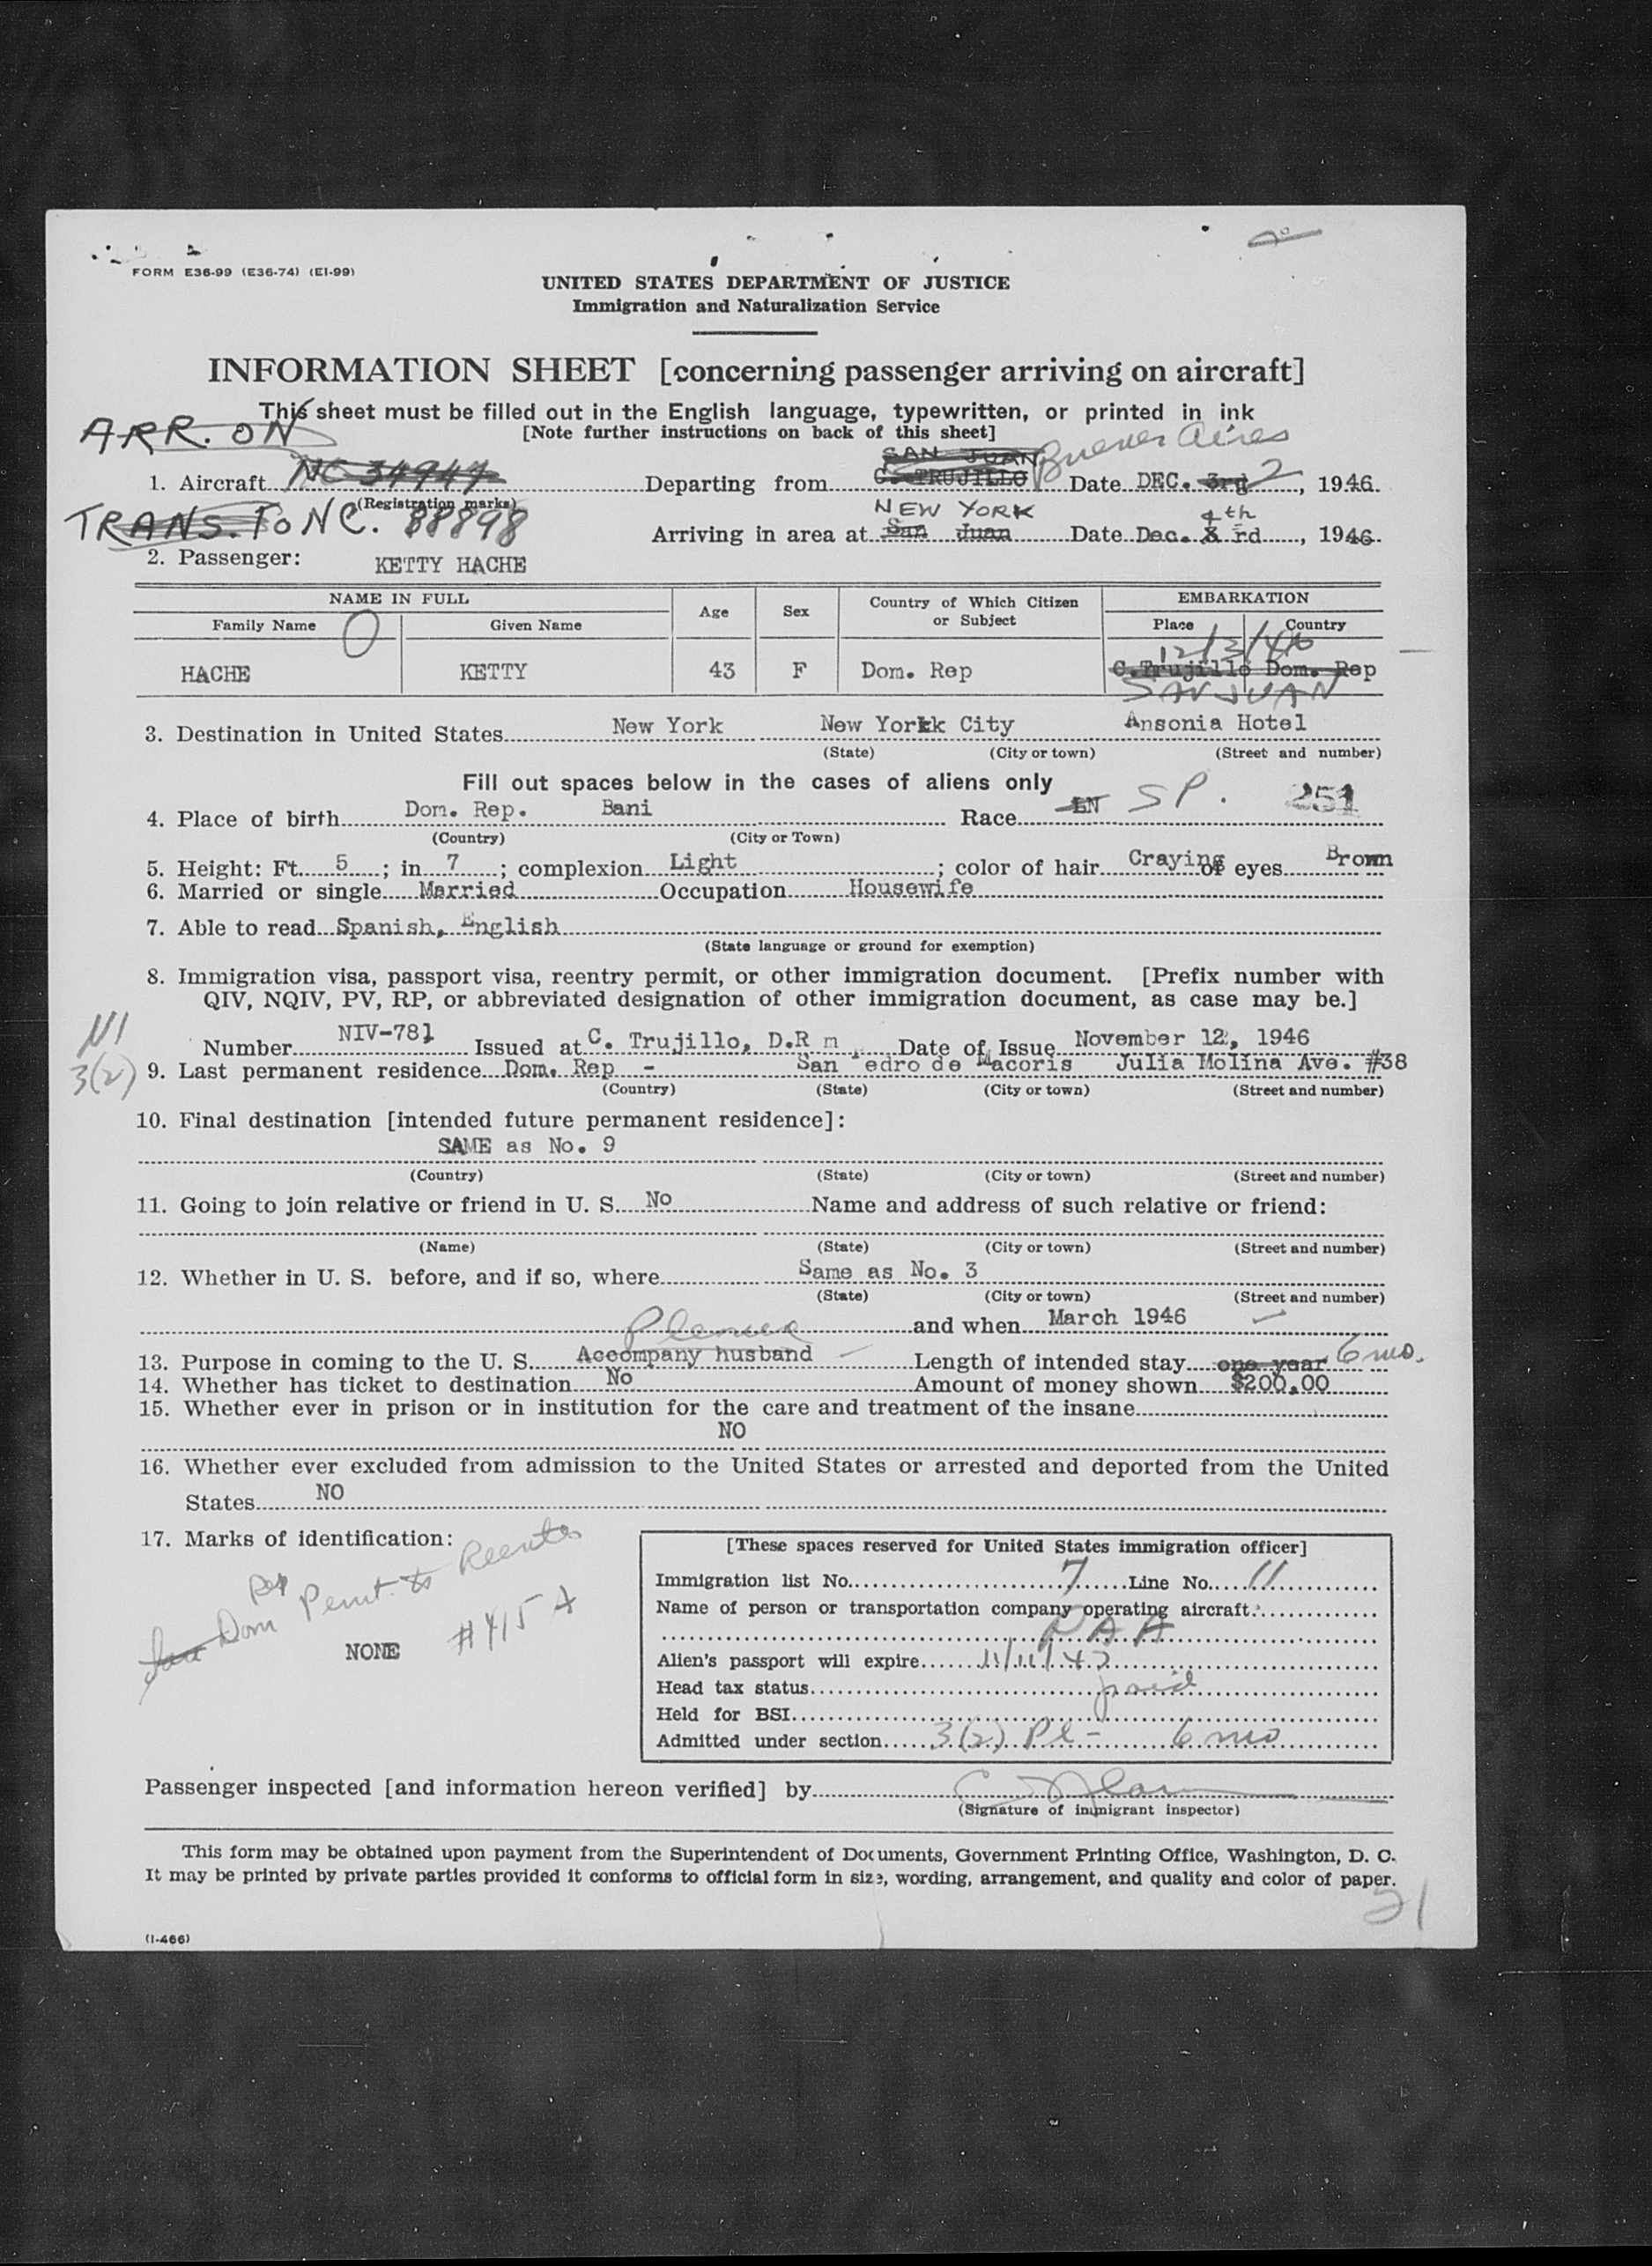 FORM E36-99 (E36-74) (EI-99)
UNITED STATES DEPARTMENT OF JUSTICE
Immigration and Naturalization Service
INFORMATION SHEET [concerning passenger arriving on aircraft]
This sheet must be filled out in the English language, typewritten, or printed in ink
ARR. ON
[Note further instructions on back of this sheet]
SAN JUAN Buenes Aires
1. Aircraft NC 34947 Departing from C. TRUJILLO Date DEC. 3rd 2, 1946.
(Registration marks)
TRANS. TO NC. 88898
NEW YORK 4th
Arriving in area at San Juan Date Dec. 3 rd, 1946.
2. Passenger: KETTY HACHE
NAME IN FULL Age Sex Country of Which Citizen or Subject EMBARKATION
Family Name Given Name Place Country
12/3/46
HACHE KETTY 43 F Dom. Rep C.Trujillo Dom. Rep
SAN JUAN
3. Destination in United States New York New Yorkk City Ansonia Hotel
(State) (City or town) (Street and number)
Fill out spaces below in the cases of aliens only
4. Place of birth Dom. Rep. Bani Race LN SP. 251
(Country) (City or Town)
5. Height: Ft. 5; in 7; complexion Light; color of hair Craying of eyes Brown
6. Married or single Married Occupation Housewife
7. Able to read Spanish, English
(State language or ground for exemption)
8. Immigration visa, passport visa, reentry permit, or other immigration document. [Prefix number with
QIV, NQIV, PV, RP, or abbreviated designation of other immigration document, as case may be.]
NI
Number NIV-781 Issued at C. Trujillo, D.R m Date of Issue November 12, 1946
3(2) 9. Last permanent residence Dom. Rep - San edro de Macoris Julia Molina Ave. #38
(Country) (State) (City or town) (Street and number)
10. Final destination [intended future permanent residence]:
SAME as No. 9
(Country) (State) (City or town) (Street and number)
11. Going to join relative or friend in U. S. No Name and address of such relative or friend:
(Name) (State) (City or town) (Street and number)
12. Whether in U. S. before, and if so, where Same as No. 3
(State) (City or town) (Street and number)
and when March 1946
13. Purpose in coming to the U. S. Accompany husband Length of intended stay one year 6 mo.
14. Whether has ticket to destination No Amount of money shown $200.00
15. Whether ever in prison or in institution for the care and treatment of the insane
NO
16. Whether ever excluded from admission to the United States or arrested and deported from the United
States NO
17. Marks of identification:
Rep
Dom Permit to Reenter
#415
NONE
[These spaces reserved for United States immigration officer]
Immigration list No. 7 Line No. 11
Name of person or transportation company operating aircraft.
PAA
Alien's passport will expire 11/11/47
Head tax status paid
Held for BSI
Admitted under section 3(2) Pl - 6 mo
Passenger inspected [and information hereon verified] by
(Signature of immigrant inspector)
This form may be obtained upon payment from the Superintendent of Documents, Government Printing Office, Washington, D. C.
It may be printed by private parties provided it conforms to official form in size, wording, arrangement, and quality and color of paper.
21
(I-466)